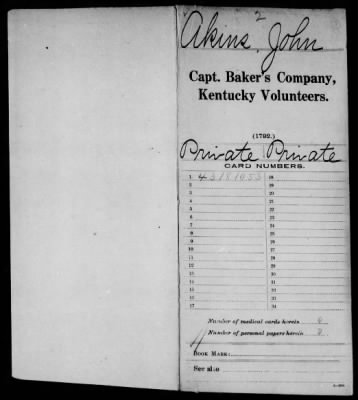 2
Akins, John
Capt. Baker's Company,
Kentucky Volunteers.
(1792.)
Private Private
CARD NUMBERS.
1 43181953 18
2 19
3 20
4 21
5 22
6 23
7 24
8 25
9 26
10 27
11 28
12 29
13 30
14 31
15 32
16 33
17 34
Number of medical cards herein 0
Number of personal papers herein 0
BOOK MARK:
See also